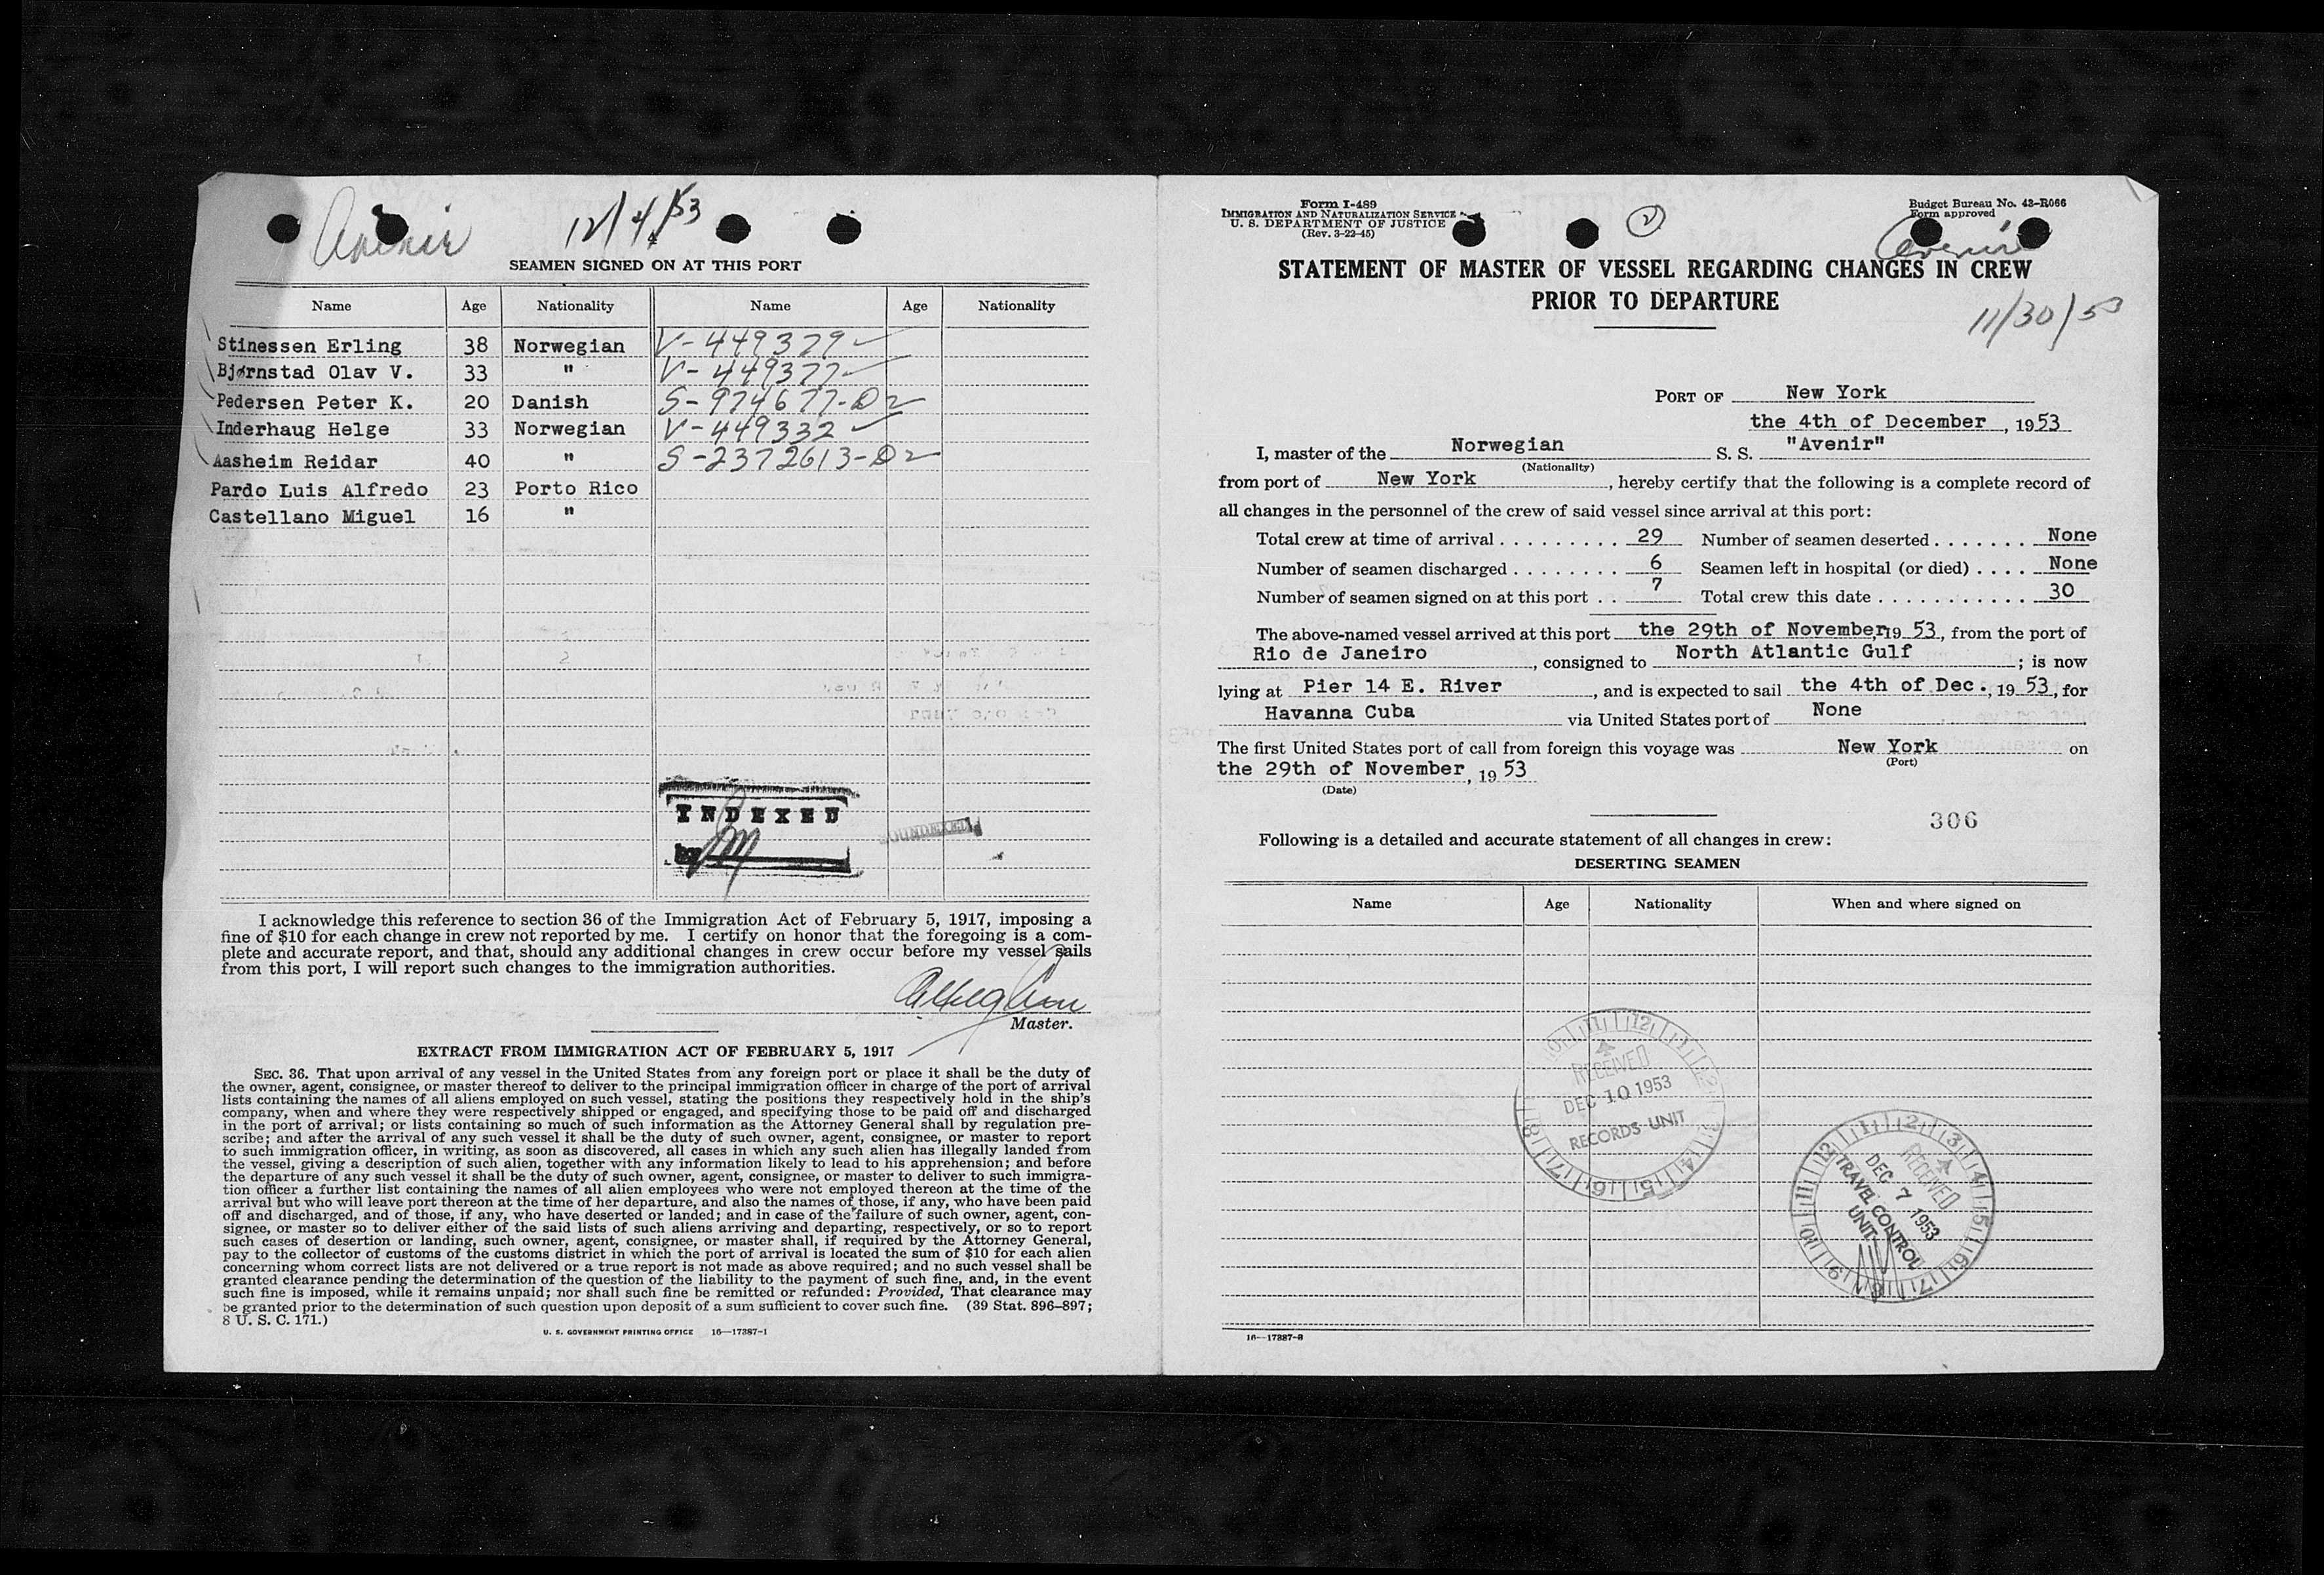 Avenir 12/4/53
SEAMEN SIGNED ON AT THIS PORT
Name Age Nationality Name Age Nationality
Stinessen Erling 38 Norwegian V-449379
Bjørnstad Olav V. 33 " V-449377
Pedersen Peter K. 20 Danish S-974677-D2
Inderhaug Helge 33 Norwegian V-449332
Aasheim Reidar 40 " S-2372613-D2
Pardo Luis Alfredo 23 Porto Rico
Castellano Miguel 16 "
INDEXED
BY
I acknowledge this reference to section 36 of the Immigration Act of February 5, 1917, imposing a
fine of $10 for each change in crew not reported by me. I certify on honor that the foregoing is a com-
plete and accurate report, and that, should any additional changes in crew occur before my vessel sails
from this port, I will report such changes to the immigration authorities.
Master.
EXTRACT FROM IMMIGRATION ACT OF FEBRUARY 5, 1917
SEC. 36. That upon arrival of any vessel in the United States from any foreign port or place it shall be the duty of
the owner, agent, consignee, or master thereof to deliver to the principal immigration officer in charge of the port of arrival
lists containing the names of all aliens employed on such vessel, stating the positions they respectively hold in the ship's
company, when and where they were respectively shipped or engaged, and specifying those to be paid off and discharged
in the port of arrival; or lists containing so much of such information as the Attorney General shall by regulation pre-
scribe; and after the arrival of any such vessel it shall be the duty of such owner, agent, consignee, or master to report
to such immigration officer, in writing, as soon as discovered, all cases in which any such alien has illegally landed from
the vessel, giving a description of such alien, together with any information likely to lead to his apprehension; and before
the departure of any such vessel it shall be the duty of such owner, agent, consignee, or master to deliver to such immigra-
tion officer a further list containing the names of all alien employees who were not employed thereon at the time of the
arrival but who will leave port thereon at the time of her departure, and also the names of those, if any, who have been paid
off and discharged, and of those, if any, who have deserted or landed; and in case of the failure of such owner, agent, con-
signee, or master so to deliver either of the said lists of such aliens arriving and departing, respectively, or so to report
such cases of desertion or landing, such owner, agent, consignee, or master shall, if required by the Attorney General,
pay to the collector of customs of the customs district in which the port of arrival is located the sum of $10 for each alien
concerning whom correct lists are not delivered or a true report is not made as above required; and no such vessel shall be
granted clearance pending the determination of the question of the liability to the payment of such fine, and, in the event
such fine is imposed, while it remains unpaid; nor shall such fine be remitted or refunded: Provided, That clearance may
be granted prior to the determination of such question upon deposit of a sum sufficient to cover such fine. (39 Stat. 896-897;
8 U. S. C. 171.)
U. S. GOVERNMENT PRINTING OFFICE 16—17387-1
Form I-489
IMMIGRATION AND NATURALIZATION SERVICE
U. S. DEPARTMENT OF JUSTICE
(Rev. 3-22-45)
2
Budget Bureau No. 43-R066
Form approved
Avenir
STATEMENT OF MASTER OF VESSEL REGARDING CHANGES IN CREW
PRIOR TO DEPARTURE
11/30/53
PORT OF New York
the 4th of December, 1953
I, master of the Norwegian S. S. "Avenir"
(Nationality)
from port of New York, hereby certify that the following is a complete record of
all changes in the personnel of the crew of said vessel since arrival at this port:
Total crew at time of arrival . . . . . . . . . 29 Number of seamen deserted . . . . . . . None
Number of seamen discharged . . . . . . . . 6 Seamen left in hospital (or died) . . . . None
Number of seamen signed on at this port . . 7 Total crew this date . . . . . . . . . . . 30
The above-named vessel arrived at this port the 29th of November, 19 53, from the port of
Rio de Janeiro, consigned to North Atlantic Gulf; is now
lying at Pier 14 E. River, and is expected to sail the 4th of Dec., 19 53, for
Havanna Cuba via United States port of None
The first United States port of call from foreign this voyage was New York on
(Port)
the 29th of November, 19 53
(Date)
306
Following is a detailed and accurate statement of all changes in crew:
DESERTING SEAMEN
Name Age Nationality When and where signed on
RECEIVED
DEC 10 1953
RECORDS UNIT
RECEIVED
DEC 7 1953
TRAVEL CONTROL
UNIT
16—17387-2